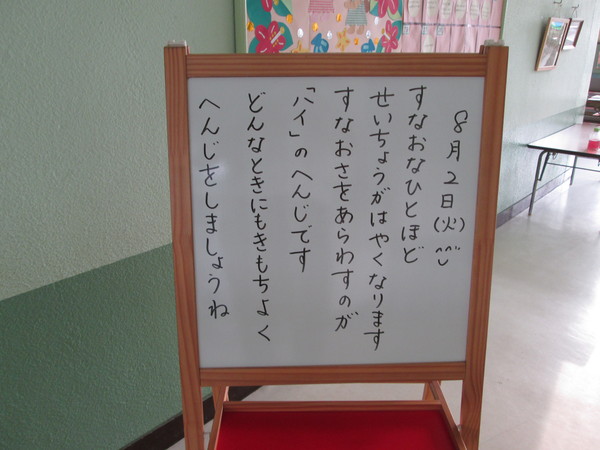 8月2日(火)^^
すなおなひとほど
せいちょうがはやくなります
すなおさをあらわすのが
「ハイ」のへんじです
どんなときにもきもちよく
へんじをしましょうね